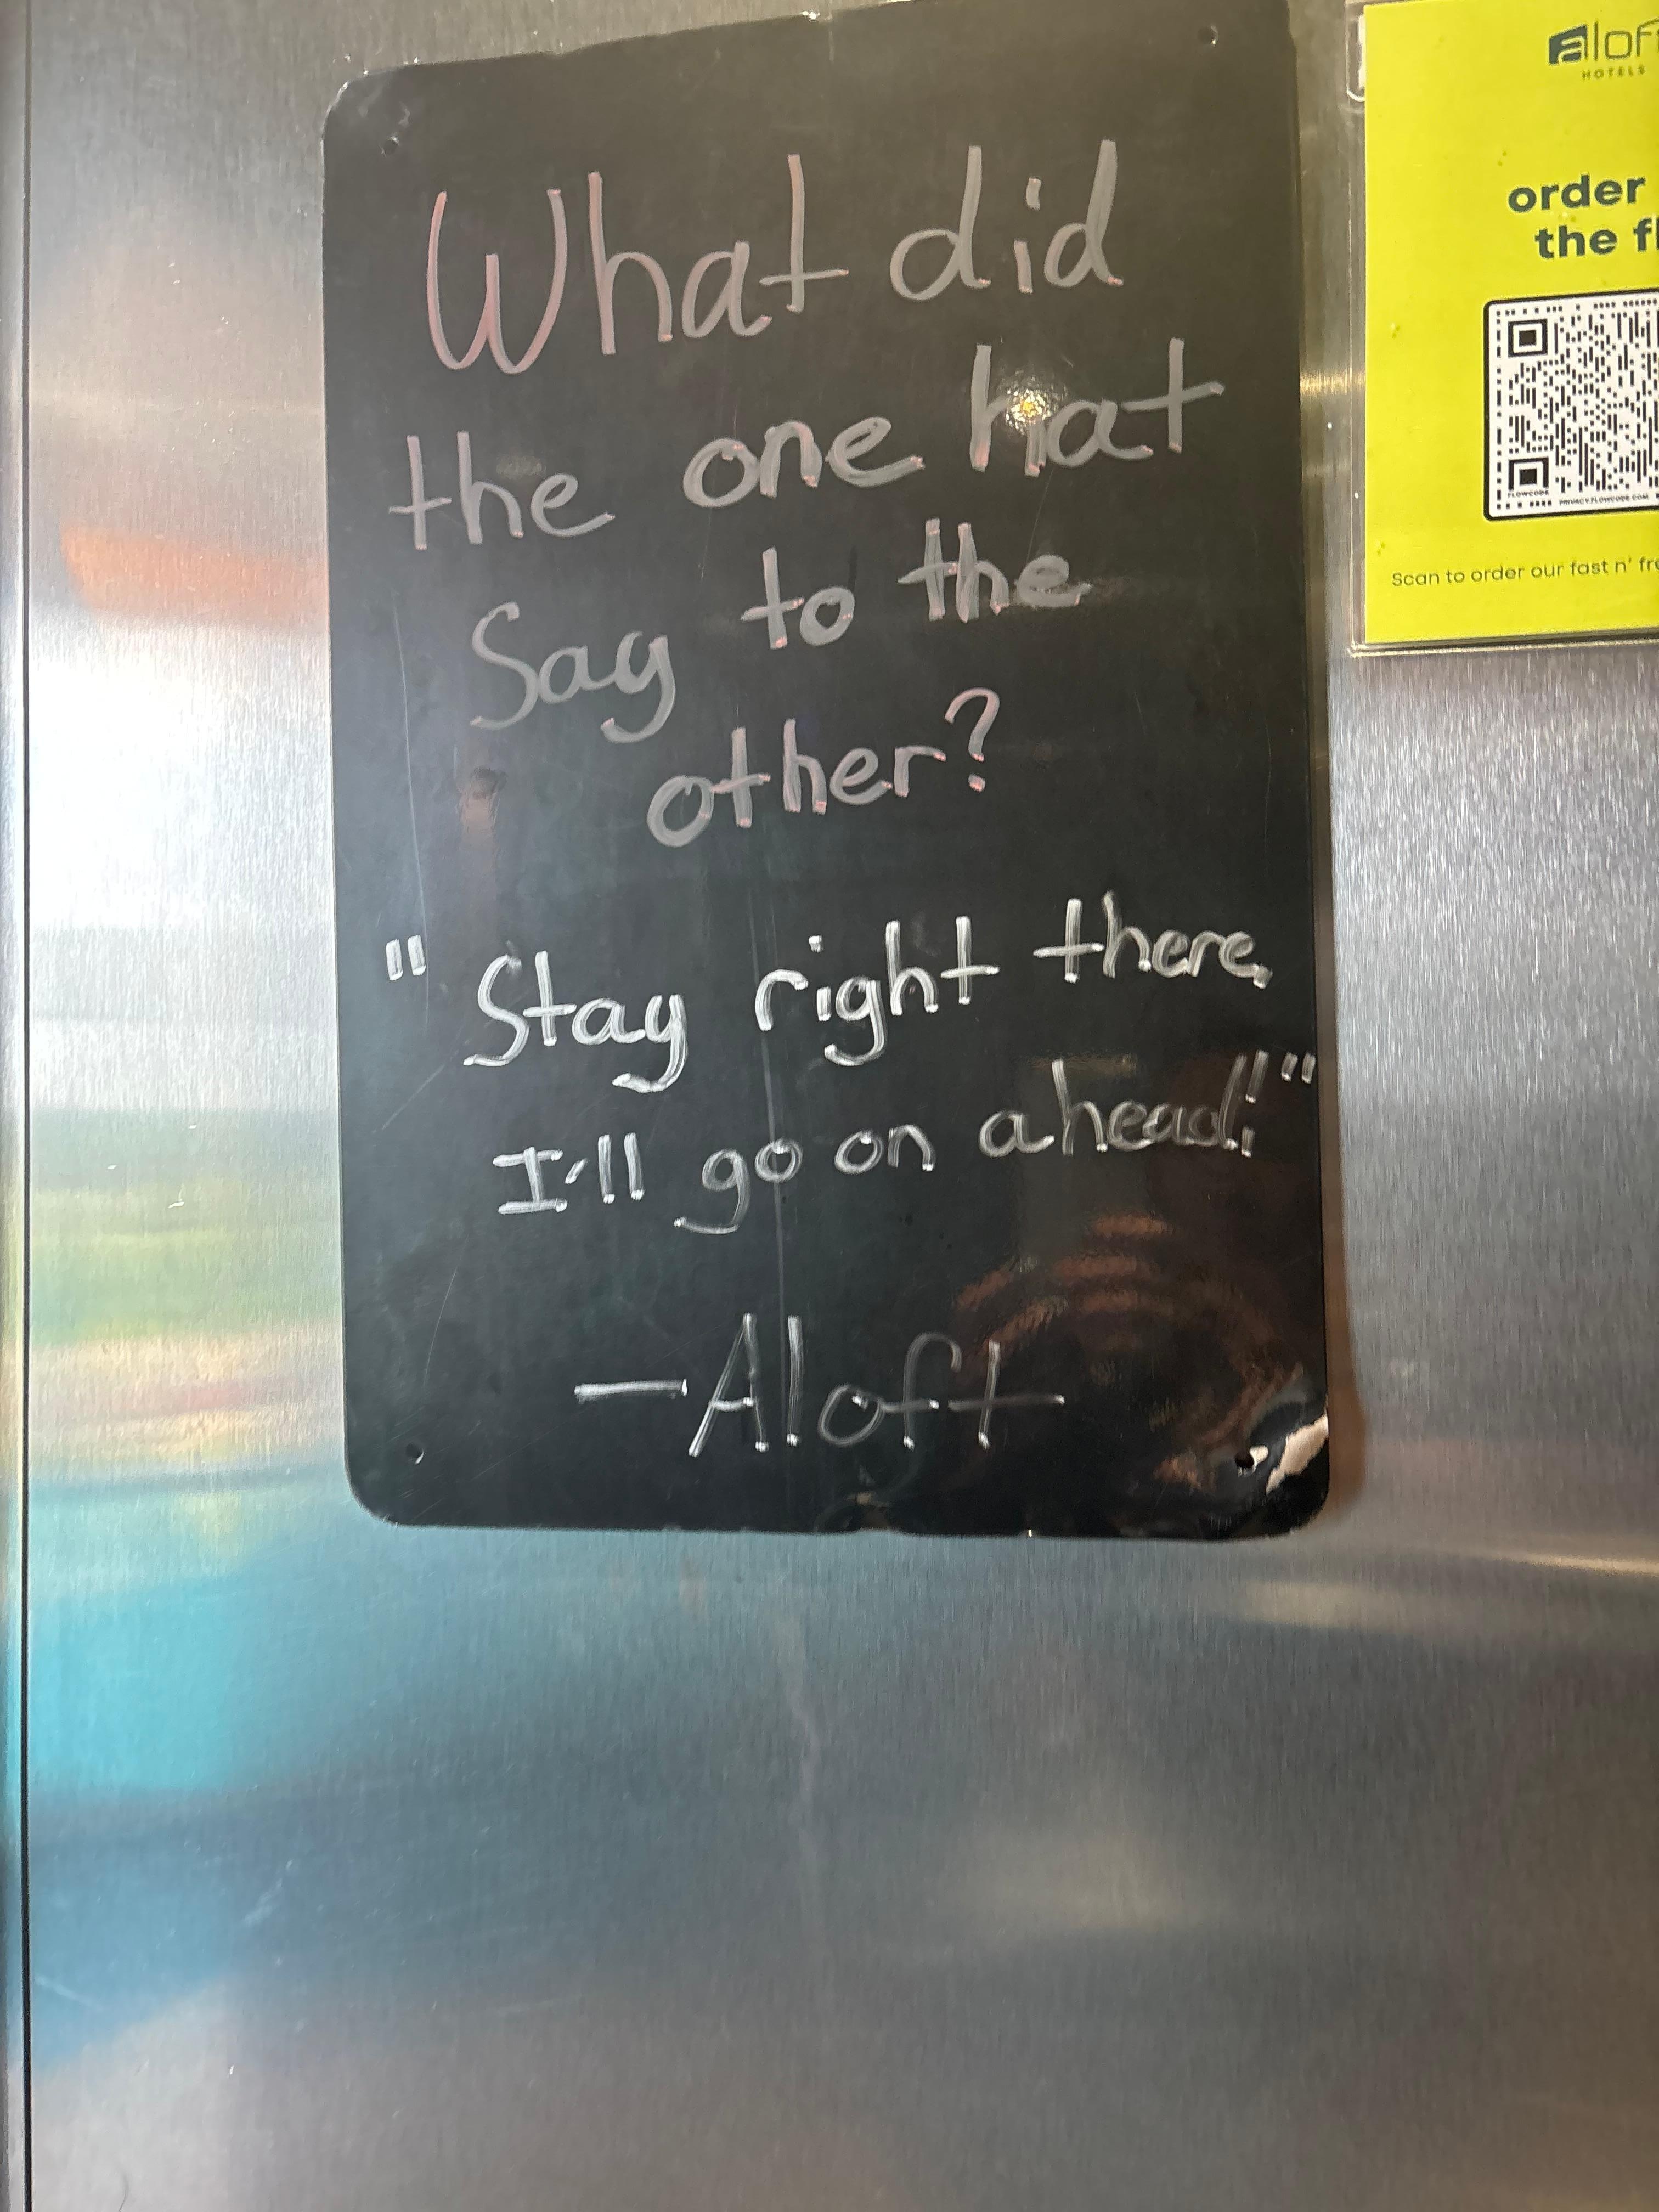 What did
the one hat
Say to the
other?
"Stay right there,
I'll go on ahead!"
—Aloft
aloft
HOTELS
order
the
FLOWCODE
PRIVACY.FLOWCODE.COM
Scan to order our fast n'